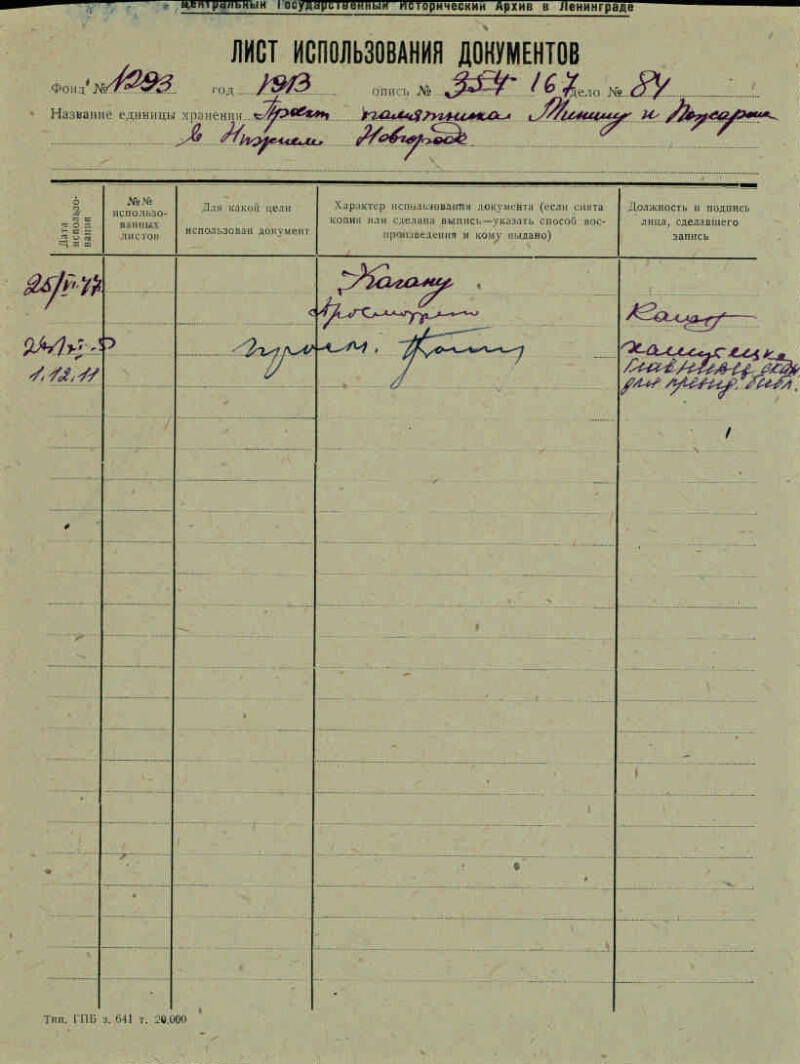 Центральный Государственный Исторический Архив в Ленинграде
ЛИСТ ИСПОЛЬЗОВАНИЯ ДОКУМЕНТОВ
Фонд № 1293 год 1913 опись № 167 дело № 84
Название единицы хранения Проект памятника Минину и Пожарскому
в Нижнем Новгороде
Дата использования
№№ использо-
ванных
листов
Для какой цели
использован документ
Характер использования документа (если снята
копия или сделана выпись—указать способ вос-
произведения и кому выдано)
Должность и подпись
лица, сделавшего
запись
Кагану
Просмотрен
1.12.11
Тип. ГПБ з. 641 т. 20.000